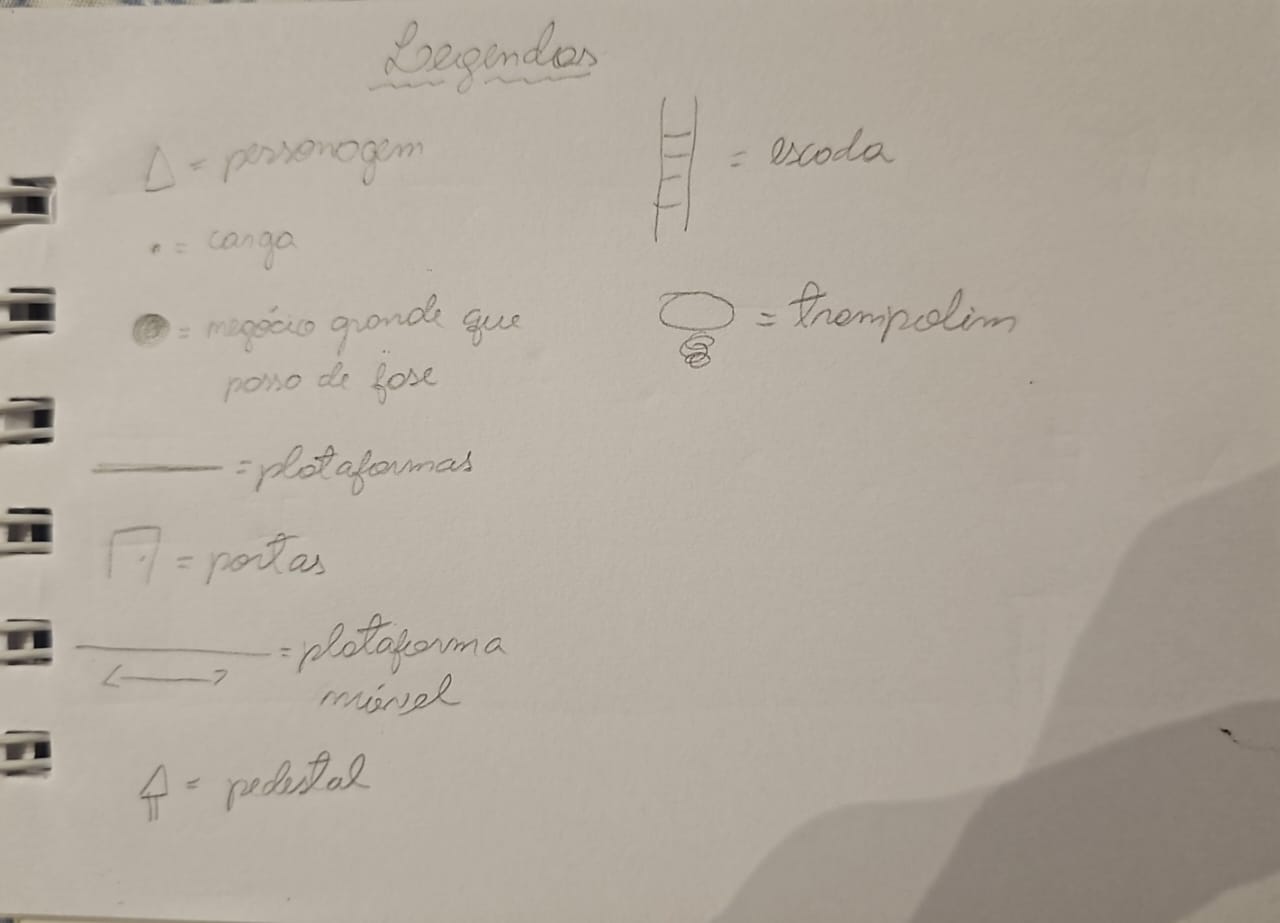 Legendas
= personagem
= carga
= negócio grande que
passa de fase
= plataformas
= portas
= plataforma
móvel
= pedestal
= escada
= trampolim